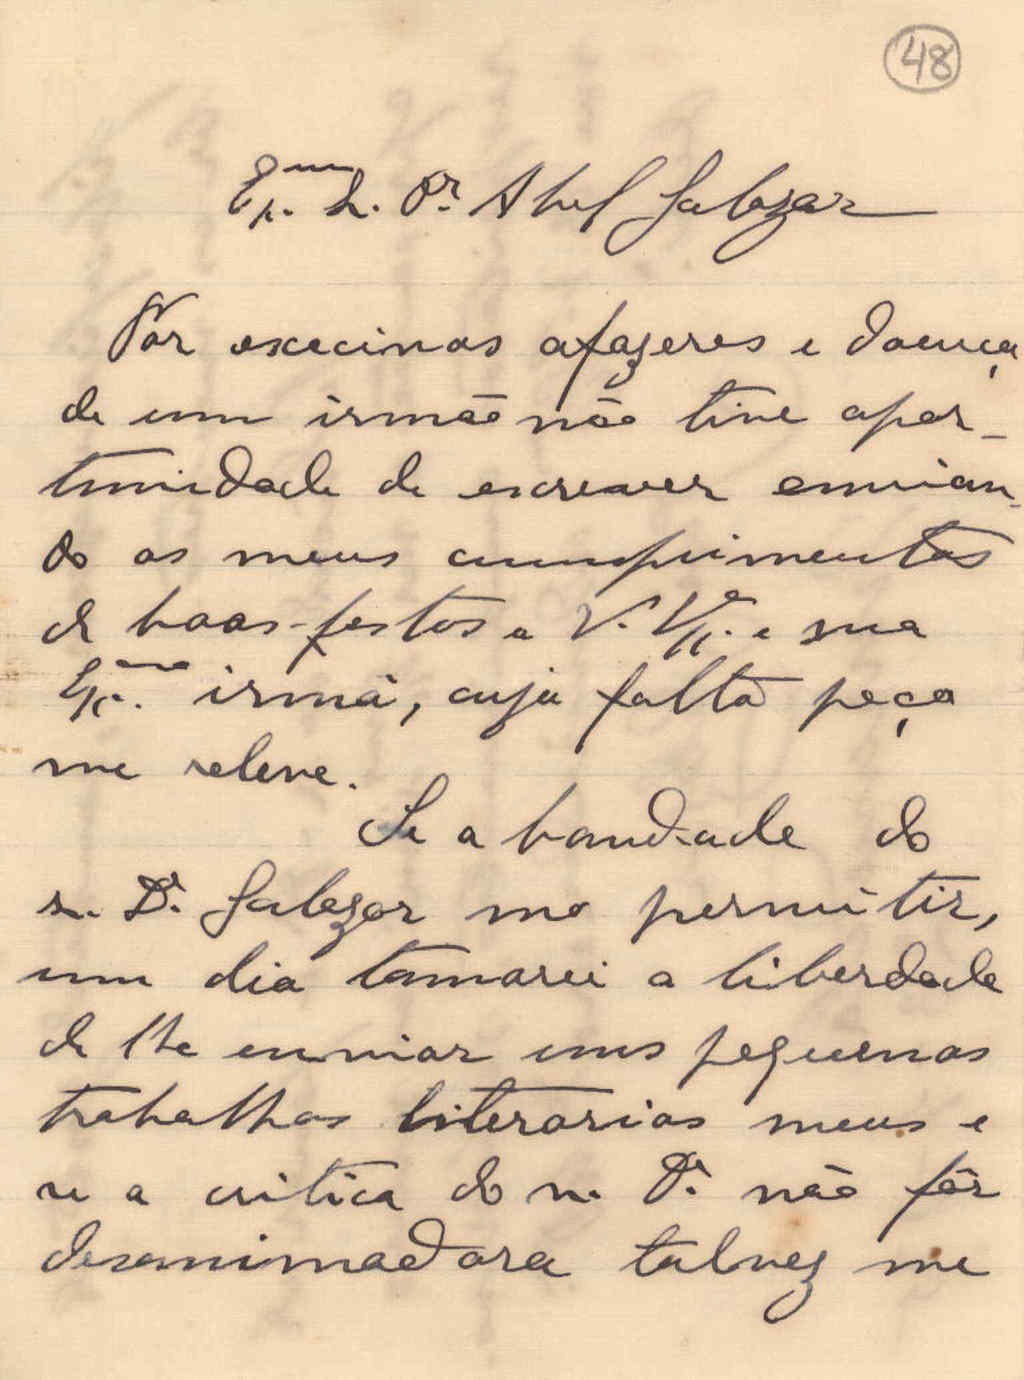 48
Ex.mo Sr. Dr. Abel Salazar
Por excecivos afazeres e doença
de um irmão não tive opor-
tunidade de escrever envian-
do os meus cumprimentos
de boas-festas a V. Ex.ª e sua
Ex.ma irmã, cuja falta peço
me releve.
Se a bondade do
sr. Dr. Salazar mo permitir,
um dia tomarei a liberdade
de lhe enviar uns pequenos
trabalhos literarios meus e
se a critica do sr. Dr. não fôr
desanimadora talvez me